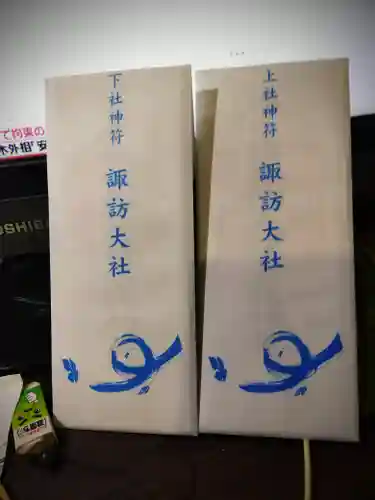 下社神符
諏訪大社
上社神符
諏訪大社
で拘束の
木外相"安